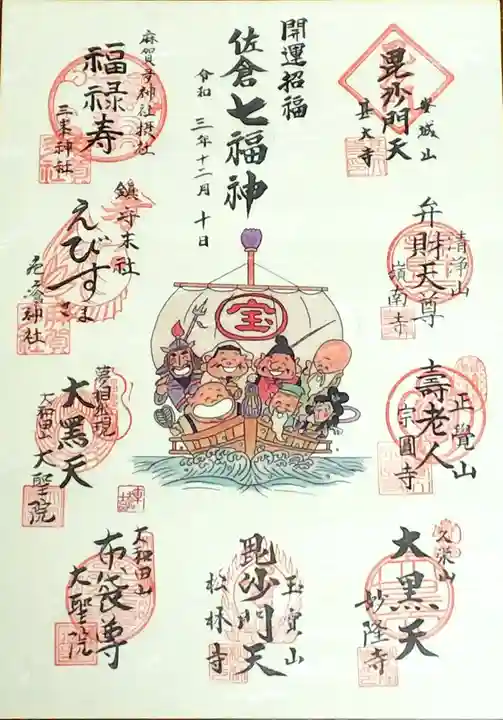 開運招福
佐倉七福神
令和三年十二月十日
安城山
毘沙門天
甚大寺
清浄山
弁財天尊
嶺南寺
正覺山
壽老人
宗圓寺
久栄山
大黒天
妙隆寺
玉寳山
毘沙門天
松林寺
大和田山
布袋尊
大聖院
大黒天
大和田山
大聖院
鎮守末社
えびすさま
麻賀多神社摂社
福禄寿
三峯神社
宝